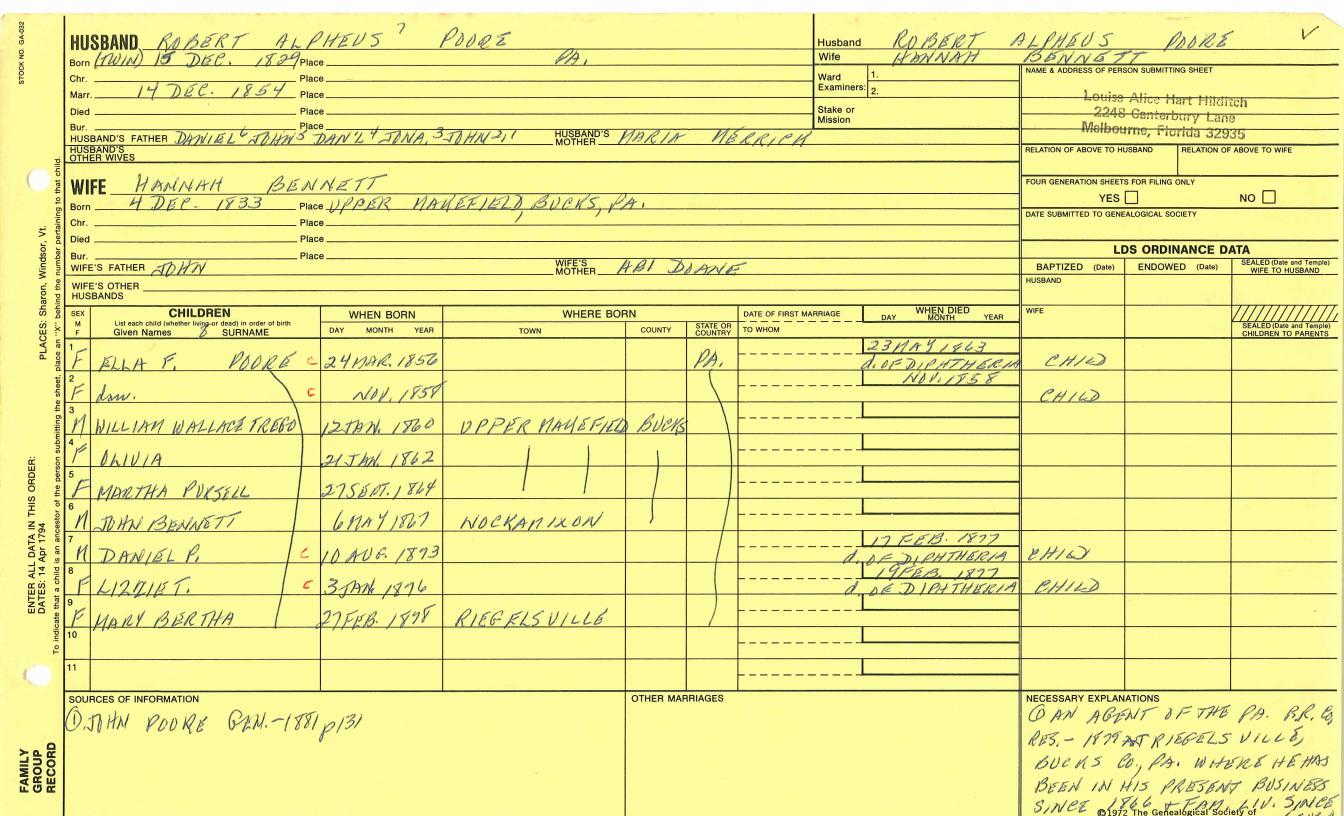 STOCK NO GA-032
HUSBAND ROBERT ALPHEUS 7 POORE
Born (TWIN) 15 DEC. 1829 Place PA.
Chr. Place
Marr. 14 DEC. 1854 Place
Died Place
Bur. Place
HUSBAND'S FATHER DANIEL 6 JOHN 5 DAN'L 4 JONA. 3 JOHN 2,1 HUSBAND'S MOTHER MARIA MERRICK
HUSBAND'S OTHER WIVES
Husband ROBERT ALPHEUS POORE
Wife HANNAH BENNETT
Ward Examiners: 1.
2.
Stake or Mission
NAME & ADDRESS OF PERSON SUBMITTING SHEET
Louise Alice Hart Hilditch
2248 Canterbury Lane
Melbourne, Florida 32935
RELATION OF ABOVE TO HUSBAND RELATION OF ABOVE TO WIFE
FOUR GENERATION SHEETS FOR FILING ONLY
YES NO
DATE SUBMITTED TO GENEALOGICAL SOCIETY
WIFE HANNAH BENNETT
Born 4 DEC. 1833 Place UPPER MAKEFIELD, BUCKS, PA.
Chr. Place
Died Place
Bur. Place
WIFE'S FATHER JOHN WIFE'S MOTHER ABI DOANE
WIFE'S OTHER HUSBANDS
LDS ORDINANCE DATA
BAPTIZED (Date) ENDOWED (Date) SEALED (Date and Temple) WIFE TO HUSBAND
HUSBAND
WIFE
SEALED (Date and Temple) CHILDREN TO PARENTS
SEX M F
CHILDREN
List each child (whether living or dead) in order of birth
Given Names 8 SURNAME
WHEN BORN
DAY MONTH YEAR
WHERE BORN
TOWN COUNTY STATE OR COUNTRY
DATE OF FIRST MARRIAGE
TO WHOM
WHEN DIED
DAY MONTH YEAR
1 F ELLA F. POORE C 24 MAR. 1856 PA. 23 MAY 1863 d. OF DIPHTHERIA CHILD
2 F dau. C NOV. 1858 NOV. 1858 CHILD
3 M WILLIAM WALLACE TREGO 12 JAN. 1860 UPPER MAKEFIELD BUCKS
4 F OLIVIA 21 JAN. 1862
5 F MARTHA PURSELL 27 SEPT. 1864
6 M JOHN BENNETT 6 MAY 1867 NOCKAMIXON
7 M DANIEL P. C 10 AUG. 1873 17 FEB. 1877 d. OF DIPHTHERIA CHILD
8 F LIZZIE T. C 3 JAN. 1876 19 FEB. 1877 d. OF DIPHTHERIA CHILD
9 F MARY BERTHA 27 FEB. 1878 RIEGELSVILLE
10
11
SOURCES OF INFORMATION
① JOHN POORE GEN.-1881 p131
OTHER MARRIAGES
NECESSARY EXPLANATIONS
① AN AGENT OF THE PA. R.R. CO,
RES.- 1879 AT RIEGELSVILLE,
BUCKS CO., PA. WHERE HE HAS
BEEN IN HIS PRESENT BUSINESS
SINCE 1866 & FAM. LIV. SINCE
©1972 The Genealogical Society of
PLACES: Sharon, Windsor, Vt.
ENTER ALL DATA IN THIS ORDER:
DATES: 14 Apr 1794
To indicate that a child is an ancestor of the person submitting the sheet, place an "X" behind the number pertaining to that child.
FAMILY
GROUP
RECORD